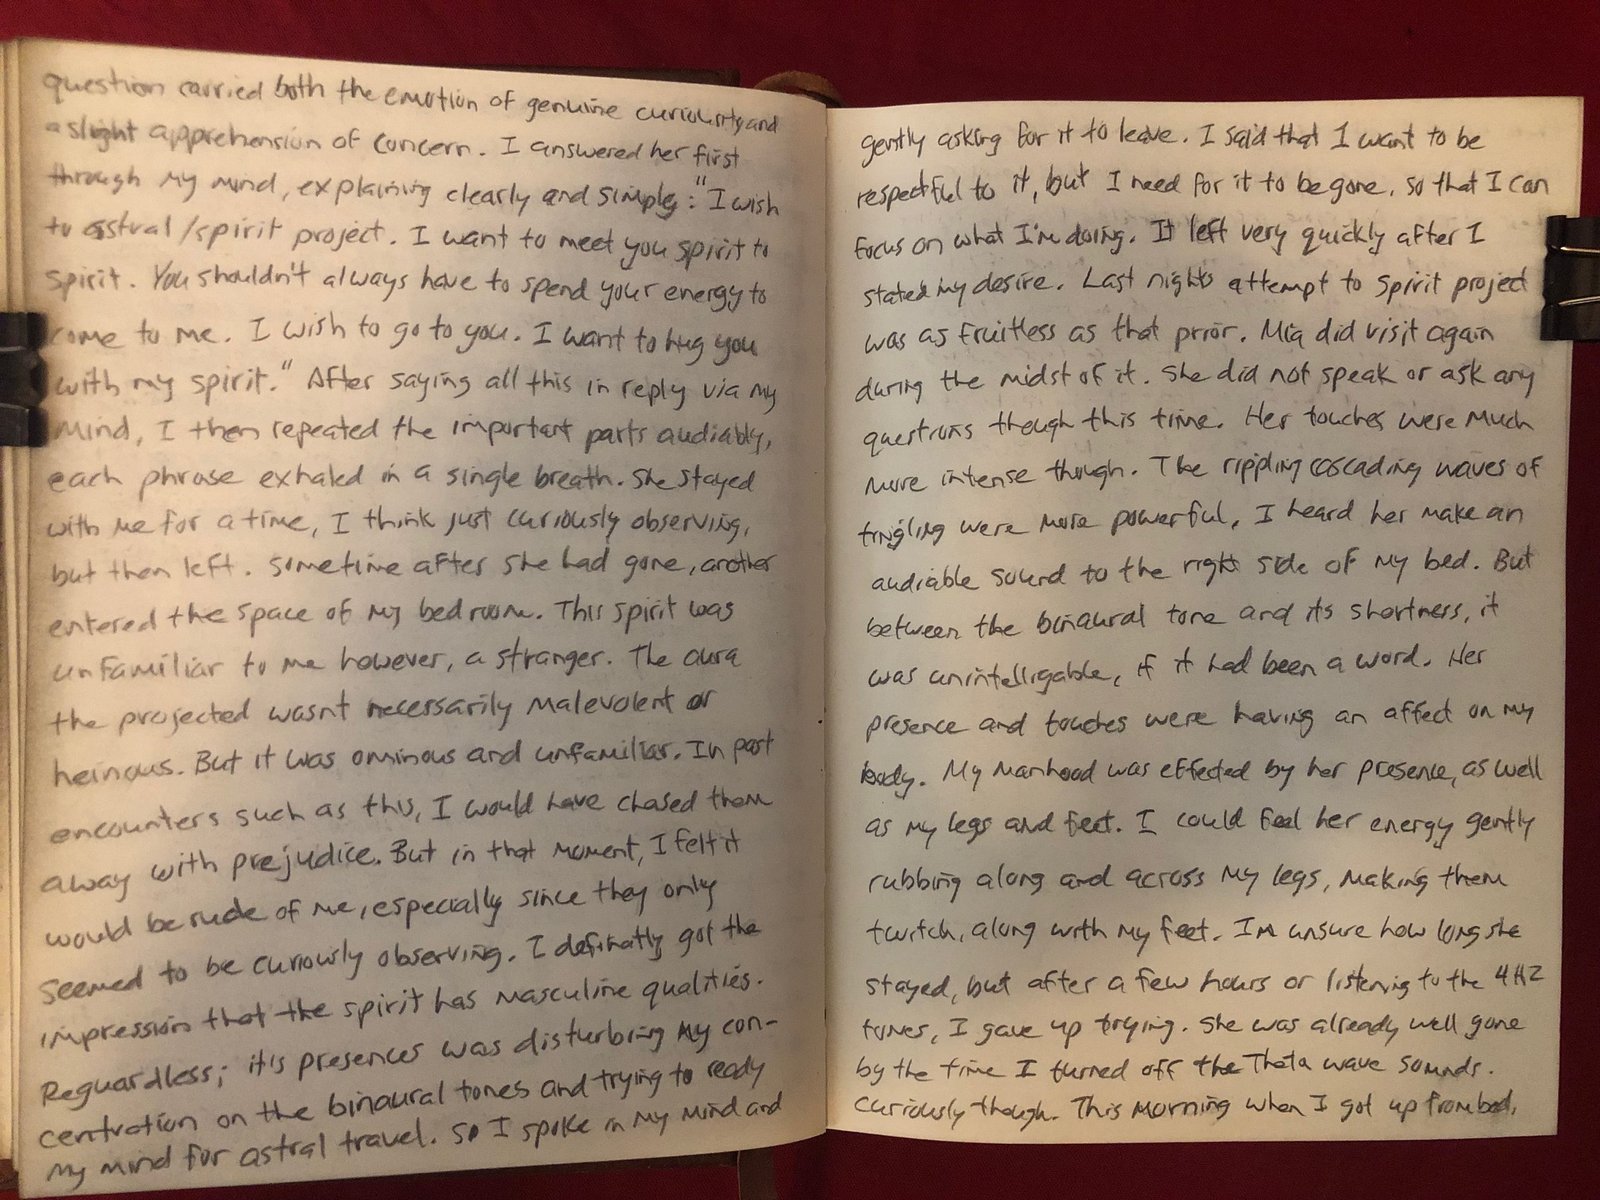 question carried both the emotion of genuine curiousity and
a slight apprehension of concern. I answered her first
through my mind, explaining clearly and simply: "I wish
to astral/spirit project. I want to meet you spirit to
spirit. You shouldn't always have to spend your energy to
come to me. I wish to go to you. I want to hug you
with my spirit." After saying all this in reply via my
mind, I then repeated the important parts audiably,
each phrase exhaled in a single breath. She stayed
with me for a time, I think just curiously observing,
but then left. Sometime after she had gone, another
entered the space of my bedroom. This spirit was
unfamiliar to me however, a stranger. The aura
the projected wasnt necessarily malevolent or
heinous. But it was ominous and unfamiliar. In past
encounters such as this, I would have chased them
away with prejudice. But in that moment, I felt it
would be rude of me, especially since they only
seemed to be curiously observing. I definatly got the
impression that the spirit has masculine qualities.
Reguardless; it's presences was disturbing my con-
centration on the binaural tones and trying to ready
my mind for astral travel. So I spoke in my mind and
gently asking for it to leave. I said that I want to be
respectful to it, but I need for it to be gone, so that I can
focus on what I'm doing. It left very quickly after I
stated my desire. Last nights attempt to spirit project
was as fruitless as that prior. Mia did visit again
during the midst of it. She did not speak or ask any
questions though this time. Her touches were much
more intense though. The rippling cascading waves of
tingling were more powerful. I heard her make an
audiable sound to the right side of my bed. But
between the binaural tone and its shortness, it
was unintelligable, if it had been a word. Her
presence and touches were having an affect on my
body. My manhood was effected by her presence, as well
as my legs and feet. I could feel her energy gently
rubbing along and across my legs, making them
twitch, along with my feet. Im unsure how long she
stayed, but after a few hours or listening to the 4HZ
tones, I gave up trying. She was already well gone
by the time I turned off the Theta wave sounds.
Curiously though. This morning when I got up from bed,